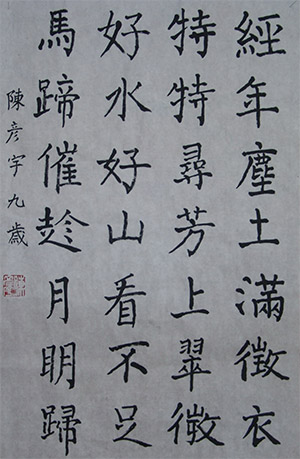 經年塵土滿徵衣
特特尋芳上翠微
好水好山看不足
馬蹄催趁月明歸
陳彥宇九歲